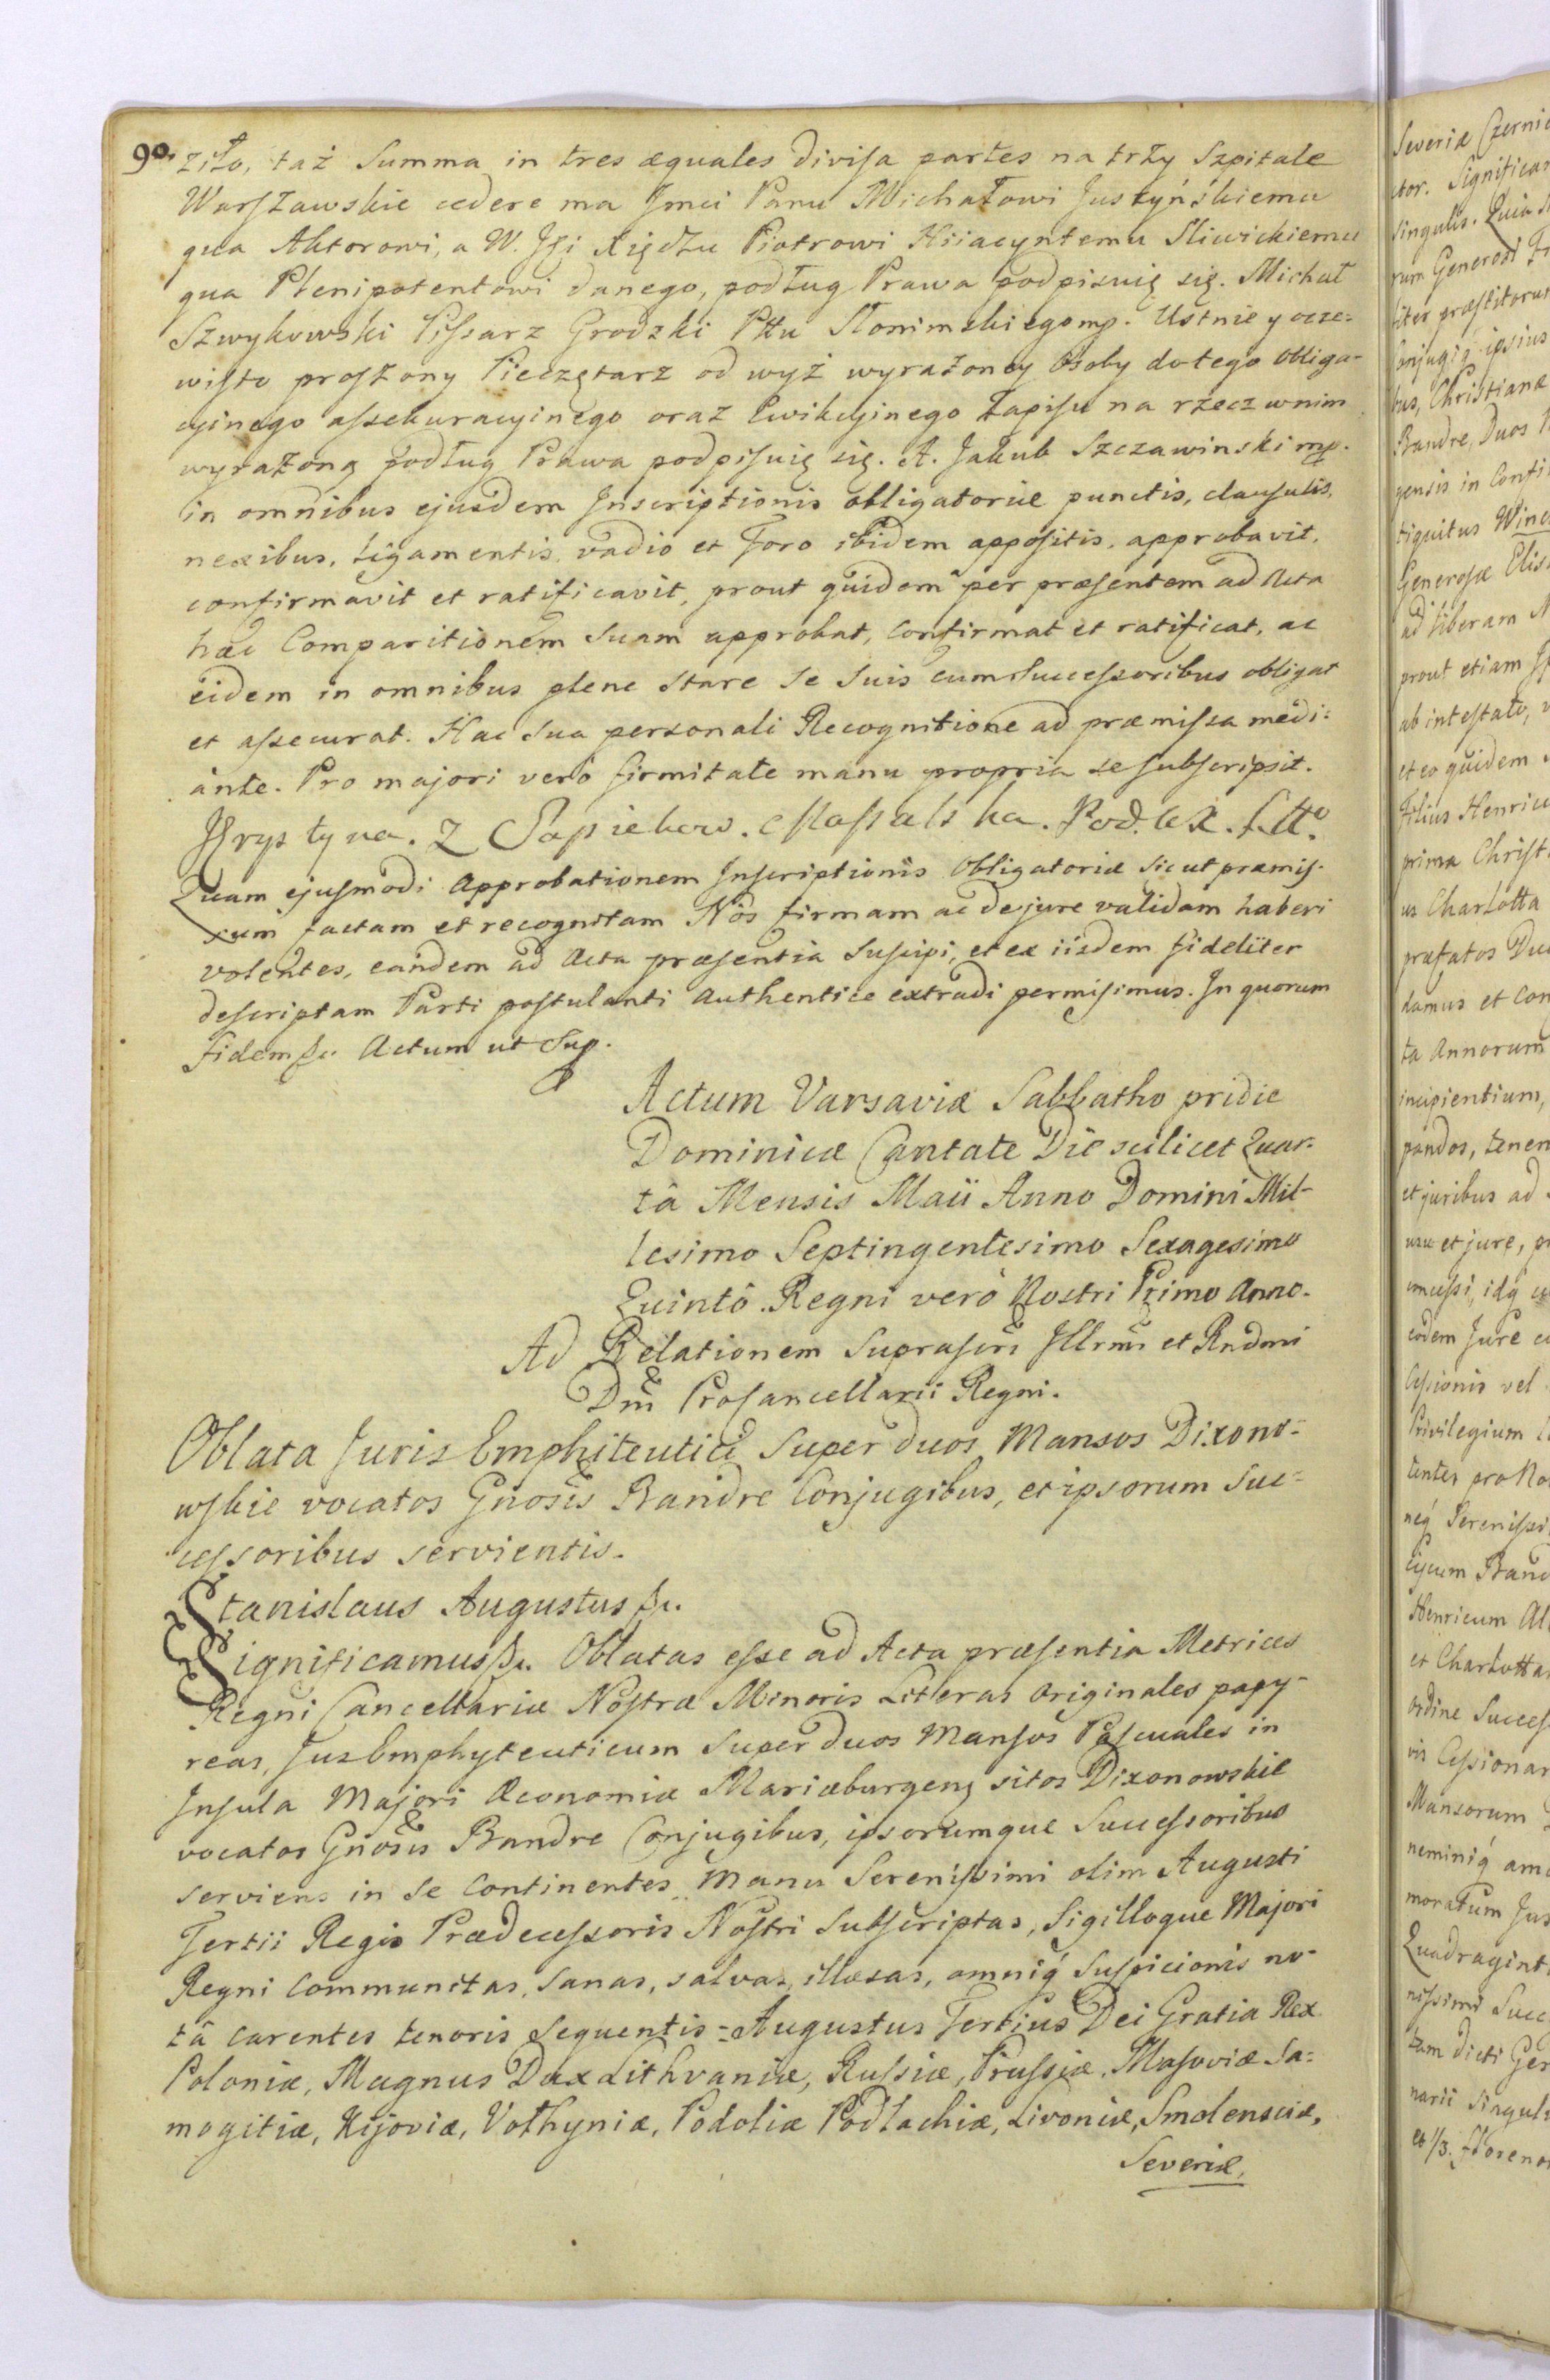 90.
ziło, taż Summa in tres æquales divisa partes na trzy Szpitale
Warszawskie cedere ma Jmci Panu Michałowi Justyńskiemu
qua Aktorowi, a W. JX. Xiędzu Piotrowi Hiiacyntemu Sliwickiemu
qua Plenipotentowi danego, podług Prawa podpisuię się. Michał
Szwykowski Pissarz Grodzki Pttu Słonimskiego mp. Ustnie y ocze-
wisto proszony Pieczętarz od wyż wyrażoney Osoby do tego obliga-
cyinego assekuracyinego oraz Ewikcyinego Zapisu na rzecz w nim
wyrażoną podług Prawa podpisuię się. A. Jakub Szczawinski mp.
in omnibus ejusdem Inscriptionis obligatoriæ punctis, clausulis,
nexibus, ligamentis, vadio et Foro ibidem appositis, approbavit,
confirmavit et ratificavit, prout quidem per præsentem ad Acta
hæc Comparitionem Suam approbat, confirmat et ratificat, ac
eidem in omnibus plene stare se Suis cum Successoribus obligat
et assecurat. Hac sua personali Recognitione ad præmissa medi-
ante. Pro majori verò firmitate manu propria se subscripsit.
Krystyna. Z Sapiehow. Massalska. Pod.
Quam ejusmodi Approbationem Inscriptionis Obligatoriæ sicut præmis-
sum factam et recognitam Nos firmam ac de jure validam haberi
volentes, eandem ad Acta præsentia suscipi, et ex iisdem fideliter
descriptam Parti postulanti Authentice extradi permisimus. In quorum
fidem &c. Actum ut Sup.
Actum Varsaviæ Sabbatho pridie
Dominicæ Cantate Die scilicet Quar-
tâ Mensis Maii Anno Domini Mil-
lesimo Septingentesimo Sexagesimo
Quintô Regni verò Nostri Primo Anno.
Ad Relationem Suprascri Illrmi et Rndmi
Dni Procancellarii Regni.
Oblata Juris Emphiteutici Super duos Mansos Dixono-
wskie vocatos Gnosis Bandre Conjugibus, et ipsorum Suc-
cessoribus servientis.
Stanislaus Augustus &c.
Significamus &c. Oblatas esse ad Acta præsentia Metrices
Regni Cancellariæ Nostræ Minoris Literas Originales papy-
reas, Jus Emphyteuticum Super duos Mansos Pascuales in
Insula Majori Œconomiæ Mariæburgens sitos Dixonowskie
vocatos Gnosis Bandre Conjugibus, ipsorumque Successoribus
serviens in se continentes, Manu Serenissimi olim Augusti
Tertii Regis Prædecessoris Nostri Subscriptas, Sigilloque Majori
Regni communitas, sanas, salvas, illæsas, omniq́ suspicionis no-
tâ carentes tenoris sequentis = Augustus Tertius Dei Gratia Rex
Poloniæ, Magnus Dux Lithvaniæ, Russiæ, Prussiæ, Masoviæ Sa-
mogitiæ, Kijoviæ, Volhyniæ, Podoliæ Podlachiæ, Livoniæ, Smolensciæ,
Severiæ,
Severiæ Czernie
ctor. Significam
singulis. Quia
rum Generosi
liter præstitorum
Conjugiq́ ipsius
bus, Christianæ
Bandre, Duos
gensis in Confi
tiquitus
Generosæ Elis
ad liberam
prout etiam
ab intestato,
et eo quidem
Filius Henric
prima Christ
us Charlotta
præfatos Du
damus et con
ta Annorum
incipientium,
pandos, tenen
et juribus ad
usu et jure, p
concessi, idq́
eodem Jure
Cessionis vel
Privilegium
tentes pro No
neq́ Serenissi
Henricum Al
et Charlotta
ordine Succes
vis Cessionar
Mansorum
neminiq́
moratum Jus
Quadragint
nissimi Succ
tam dicti Ge
narii Singul
et 1/3. floreno